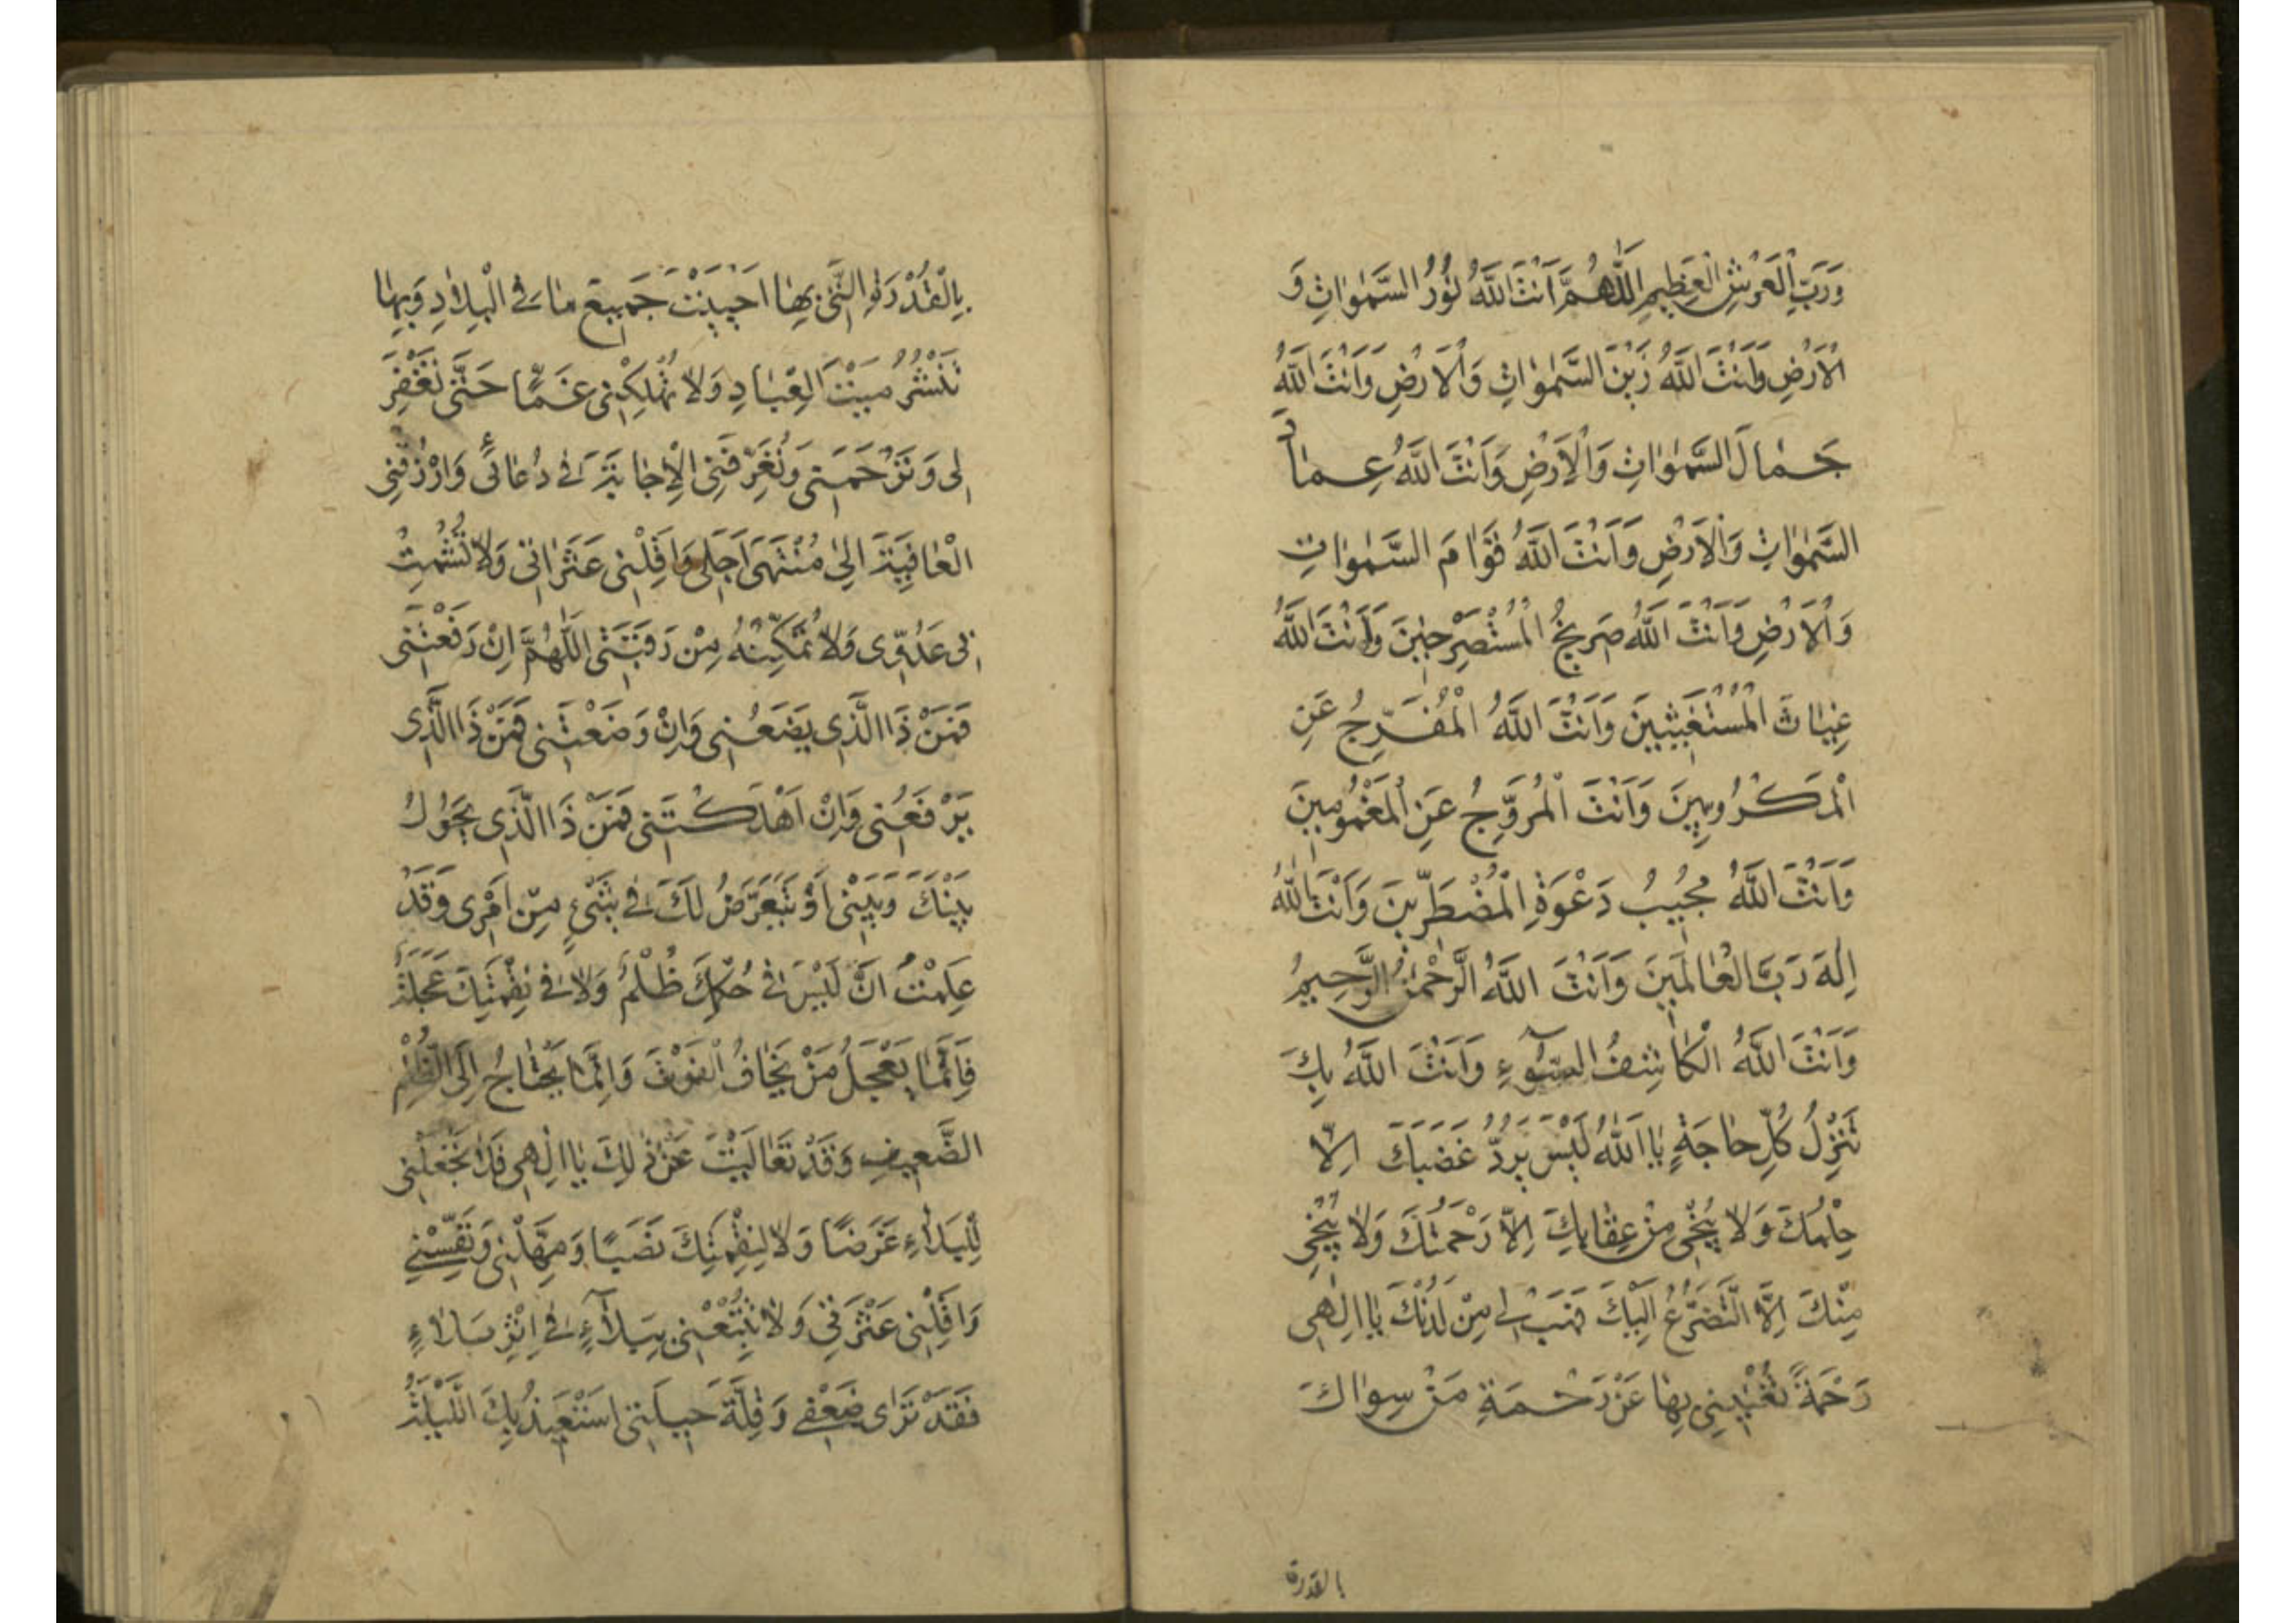 وَرَبَّ الْعَرْشِ الْعَظِيمِ اَللّٰهُمَّ اَنْتَ اللّٰهُ نُورُ السَّمٰوَاتِ وَ
الْاَرْضِ وَاَنْتَ اللّٰهُ زَيْنَ السَّمٰوَاتِ وَالْاَرْضِ وَاَنْتَ اللّٰهُ
جَمَالَ السَّمٰوَاتِ وَالْاَرْضِ وَاَنْتَ اللّٰهُ عِمَادُ
السَّمٰوَاتِ وَالْاَرْضِ وَاَنْتَ اللّٰهُ قَوَامَ السَّمٰوَاتِ
وَالْاَرْضِ وَاَنْتَ اللّٰهُ صَرِيخُ الْمُسْتَصْرِخِينَ وَاَنْتَ اللّٰهُ
غِيَاثَ الْمُسْتَغِيثِينَ وَاَنْتَ اللّٰهُ الْمُفَرِّجُ عَنِ
الْمَكْرُوبِينَ وَاَنْتَ الْمُرَوِّجُ عَنِ الْمَغْمُومِينَ
وَاَنْتَ اللّٰهُ مُجِيبُ دَعْوَةِ الْمُضْطَرِّينَ وَاَنْتَ اللّٰهُ
اِلٰهَ رَبَّ الْعَالَمِينَ وَاَنْتَ اللّٰهُ الرَّحْمٰنُ الرَّحِيمُ
وَاَنْتَ اللّٰهُ الْكَاشِفُ السُّوءِ وَاَنْتَ اللّٰهُ بِكَ
تَنْزِلُ كُلِّ حَاجَةٍ يَا اَللّٰهُ لَيْسَ يَرُدُّ غَضَبَكَ اِلَّا
حِلْمُكَ وَلَا يُنْجِي مِنْ عِقَابِكَ اِلَّا رَحْمَتُكَ وَلَا يُنْجِي
مِنْكَ اِلَّا التَّضَرُّعُ اِلَيْكَ فَهَبْ لِي مِنْ لَدُنْكَ يَا اِلٰهِي
رَحْمَةً تُغْنِينِي بِهَا عَنْ رَحْمَةِ مَنْ سِوَاكَ
بالقدرة
بِالْقُدْرَةِ الَّتِي بِهَا اَحْيَيْتَ جَمِيعَ مَا فِي الْبِلَادِ وَبِهَا
تَنْشُرُ مَيْتَ الْعِبَادِ وَلَا تُهْلِكْنِي غَمًّا حَتَّى تَغْفِرَ
لِي وَتَرْحَمَنِي وَتُعَرِّفَنِي الْاِجَابَةَ فِي دُعَائِي وَارْزُقْنِي
الْعَافِيَةَ اِلَى مُنْتَهَى اَجَلِي وَاَقِلْنِي عَثَرَاتِي وَلَا تُشْمِتْ
بِي عَدُوِّي وَلَا تُمَكِّنْهُ مِنْ رَقَبَتِي اَللّٰهُمَّ اِنْ رَفَعْتَنِي
فَمَنْ ذَا الَّذِي يَضَعُنِي وَاِنْ وَضَعْتَنِي فَمَنْ ذَا الَّذِي
يَرْفَعُنِي وَاِنْ اَهْلَكْتَنِي فَمَنْ ذَا الَّذِي يَحُولُ
بَيْنَكَ وَبَيْنِي اَوْ يَتَعَرَّضُ لَكَ فِي شَيْءٍ مِنْ اَمْرِي وَقَدْ
عَلِمْتُ اَنَّ لَيْسَ فِي حُكْمِكَ ظُلْمٌ وَلَا فِي نِقْمَتِكَ عَجَلَةٌ
فَاِنَّمَا يَعْجَلُ مَنْ يَخَافُ الْفَوْتَ وَاِنَّمَا يَحْتَاجُ اِلَى الظُّلْمِ
الضَّعِيفِ وَقَدْ تَعَالَيْتَ عَنْ ذٰلِكَ يَا اِلٰهِي فَلَا تَجْعَلْنِي
لِلْبَلَاءِ غَرَضًا وَلَا لِنِقْمَتِكَ نَصَبًا وَمَهِّلْنِي وَنَفِّسْنِي
وَاَقِلْنِي عَثْرَتِي وَلَا تُتْبِعْنِي بِبَلَاءٍ فِي اِثْرِ بَلَاءٍ
فَقَدْ تَرَى ضَعْفِي وَقِلَّةَ حِيلَتِي اَسْتَعِيذُ بِكَ اللَّيْلَةَ